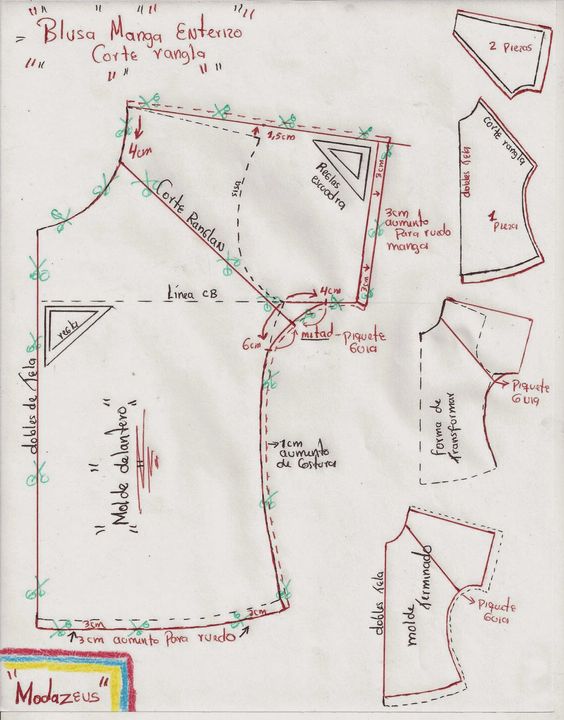 Blusa Manga Enterizo
Corte rangla
2 Piezas
4cm
1,5cm
sisa
Reglas
escuadra
2cm
3cm
aumento
Para ruedo
manga
3cm
Corte Ranglan
dobles Tela
corte rangla
1
Pieza
Línea CB
4cm
6cm
mitad - Piquete
Guia
regla
dobles de Tela
"Molde delantero"
1cm
aumento
de Costura
Piquete
Guia
forma de
Transformar
dobles Tela
molde Terminado
Piquete
Guia
3cm
3cm
3cm aumento Para ruedo
"Modazeus"